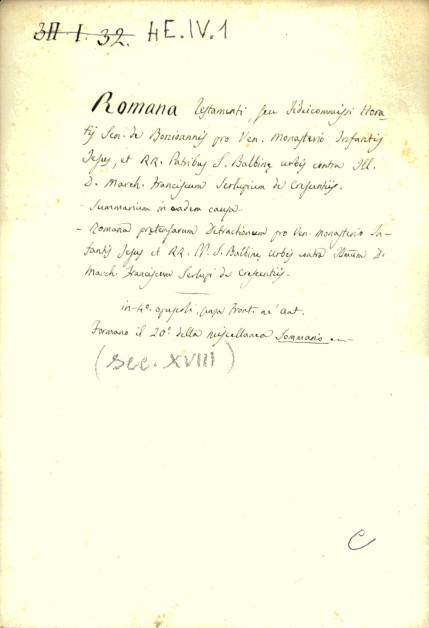 3H I. 32. HE.IV.1
Romana Testamenti, seu Fideicommissi Hora-
tij Sen. de Bonioannis pro Ven. Monasterio Infantis
Jesus, et RR. Patribus S. Balbinę urbis contra Ill.
D. March. Franciscum Serlupium de Crescentiis.
- Summarium in eadem causa
- Romana prętensarum Detractionum pro Ven. Monasterio In-
fantis Jesus et RR. PP. S. Balbinę Urbis contra Illmum D.
March. Franciscum Serlupi de Crescentiis.
in-4°. opuscoli, senza front. ne' ant.
Formano il 20° della miscellanea Sommario
(sec. XVIII)
C